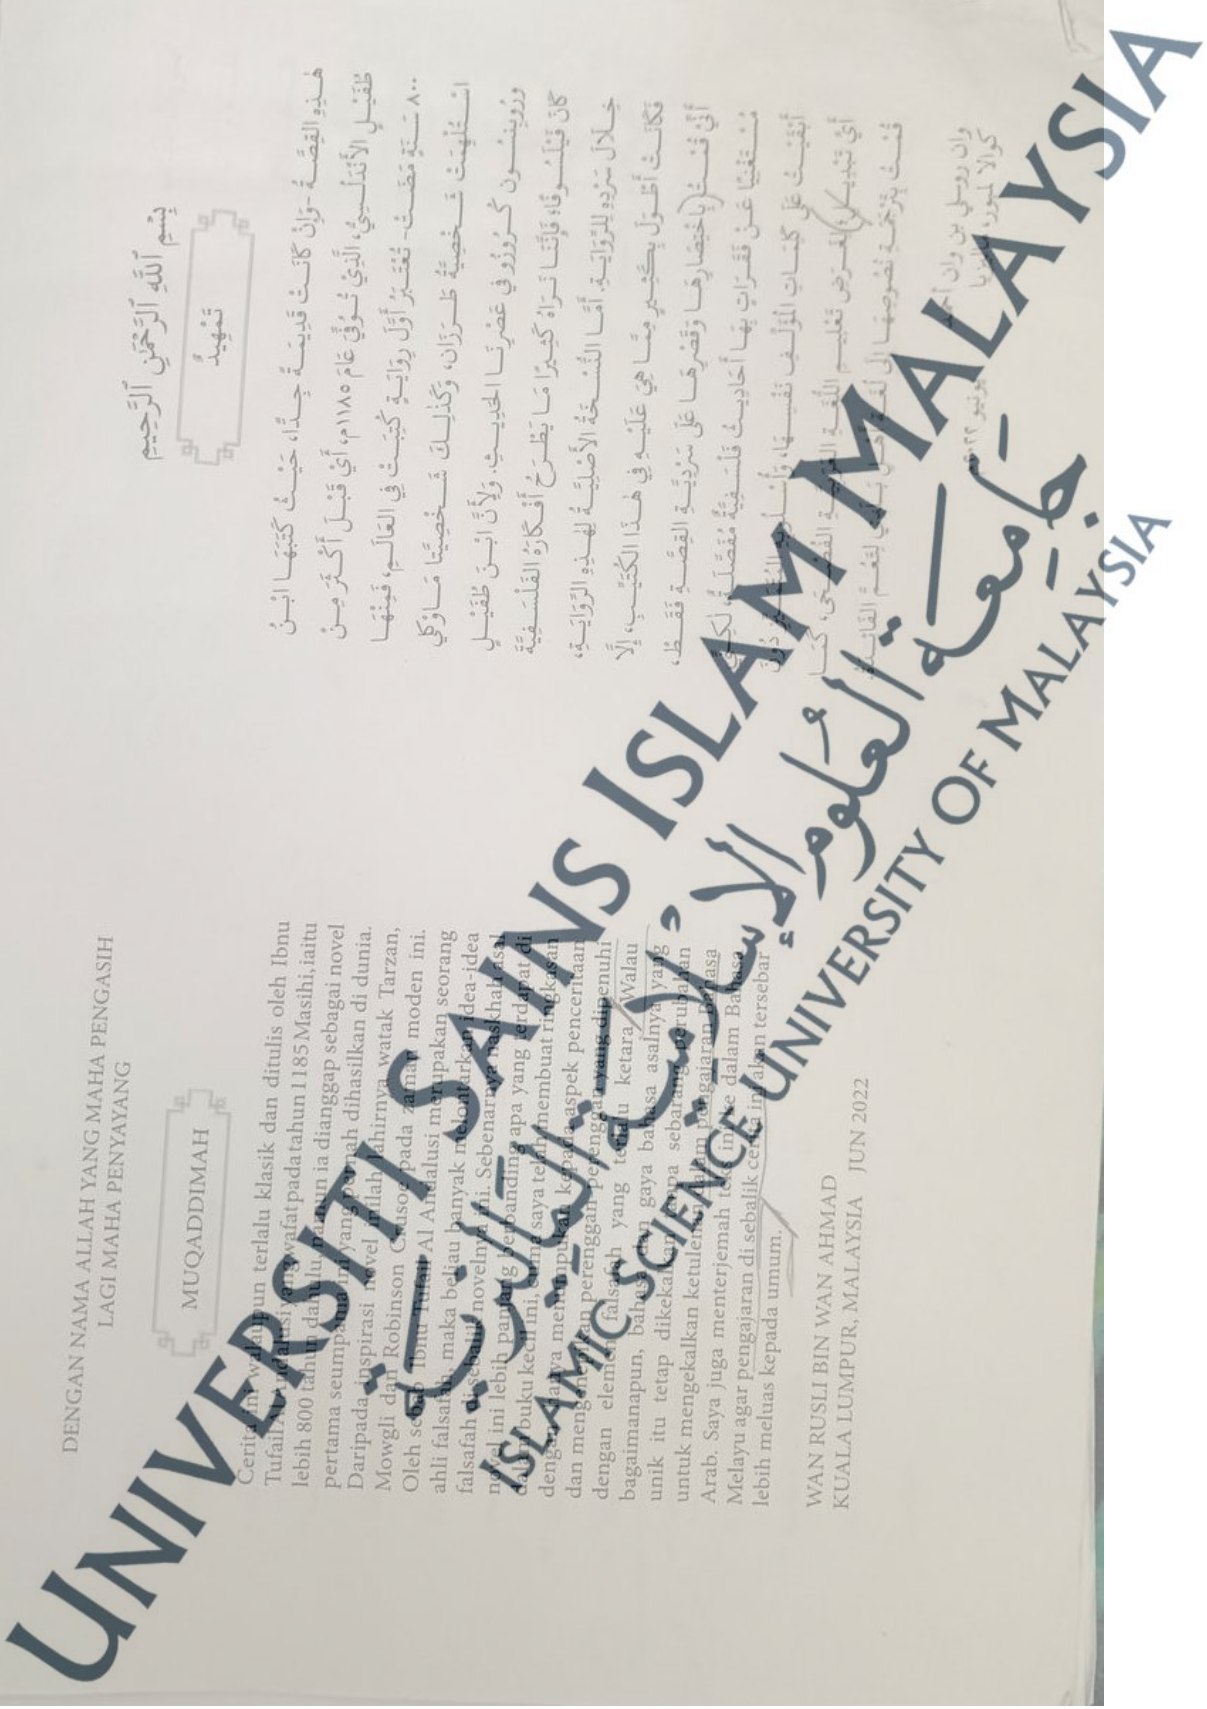 DENGAN NAMA ALLAH YANG MAHA PENGASIH
LAGI MAHA PENYAYANG
MUQADDIMAH
Cerita ini walaupun terlalu klasik dan ditulis oleh Ibnu
Tufail Al Andalusi yang wafat pada tahun 1185 Masihi, iaitu
lebih 800 tahun dahulu, namun ia dianggap sebagai novel
pertama seumpama ini yang pernah dihasilkan di dunia.
Daripada inspirasi novel inilah lahirnya watak Tarzan,
Mowgli dan Robinson Crusoe pada zaman moden ini.
Oleh sebab Ibnu Tufail Al Andalusi merupakan seorang
ahli falsafah, maka beliau banyak melontarkan idea-idea
falsafah di sebalik novelnya ini. Sebenarnya naskhah asal
novel ini lebih panjang berbanding apa yang terdapat di
dalam buku kecil ini, cuma saya telah membuat ringkasan
dengan hanya menumpukan kepada aspek penceritaan
dan mengenepikan perenggan-perenggan yang dipenuhi
dengan elemen falsafah yang terlalu ketara. Walau
bagaimanapun, bahasa dan gaya bahasa asalnya yang
unik itu tetap dikekalkan tanpa sebarang perubahan
untuk mengekalkan ketulenan dalam pengajaran Bahasa
Arab. Saya juga menterjemah teks ini ke dalam Bahasa
Melayu agar pengajaran di sebalik cerita ini akan tersebar
lebih meluas kepada umum.
WAN RUSLI BIN WAN AHMAD
KUALA LUMPUR, MALAYSIA JUN 2022
بِسْمِ ٱللَّهِ ٱلرَّحْمَٰنِ ٱلرَّحِيمِ
تَمْهِيدٌ
هَذِهِ القِصَّةُ -وَإِنْ كَانَتْ قَدِيمَةً جِدًّا، حَيْثُ كَتَبَهَا ابْنُ
طُفَيْلٍ الأَنْدَلُسِيُّ، الَّذِيْ تُوُفِّيَ عَامَ ١١٨٥م، أَيْ قَبْلَ أَكْثَرَ مِنْ
٨٠٠ سَنَةٍ مَضَتْ- تُعْتَبَرُ أَوَّلَ رِوَايَةٍ كُتِبَتْ فِي العَالَمِ، فَمِنْهَا
اسْتُلْهِمَتْ شَخْصِيَّةُ طَرَزَان، وَكَذَلِكَ شَخْصِيَّتَا مَاوْكِلِي
وَرُوبِنْسُون كُرُوزُو فِي عَصْرِنَا الحَدِيثِ. وَلِأَنَّ ابْنَ طُفَيْلٍ
كَانَ فَيْلَسُوفًا، فَإِنَّنَا نَرَاهُ كَثِيرًا مَا يَطْرَحُ أَفْكَارَهُ الفَلْسَفِيَّةَ
خِلَالَ سَرْدِهِ لِلرِّوَايَةِ. أَمَّا النُّسْخَةُ الأَصْلِيَّةُ لِهَذِهِ الرِّوَايَةِ،
فَكَانَتْ أَطْوَلَ بِكَثِيرٍ مِمَّا هِيَ عَلَيْهِ فِي هَذَا الكُتَيِّبِ، إِلَّا
أَنِّي قُمْتُ بِاخْتِصَارِهَا وَقَصْرِهَا عَلَى سَرْدِيَّةِ القِصَّةِ فَقَطْ،
مُسْتَغْنِيًا عَنْ فَقَرَاتٍ بِهَا أَحَادِيثُ فَلْسَفِيَّةٌ مُفَصَّلَةٌ، لَكِنِّي
أَبْقَيْتُ عَلَى كَلِمَاتِ المُؤَلِّفِ نَفْسِهَا، وَأُسْلُوبِهِ دُونَ
أَيِّ تَبْدِيلٍ، لِغَرَضِ تَعْلِيمِ اللُّغَةِ العَرَبِيَّةِ الفُصْحَى، كَمَا
قُمْتُ بِتَرْجَمَةِ نُصُوصِهَا إِلَى لُغَةِ لِتَعُمَّ الفَائِدَةُ.
وان روسلي بن وان أحمد
كوالا لمبور، ماليزيا يونيو ٢٠٢٢م
UNIVERSITI SAINS ISLAM MALAYSIA
جامعة العلوم الإسلامية الماليزية
ISLAMIC SCIENCE UNIVERSITY OF MALAYSIA